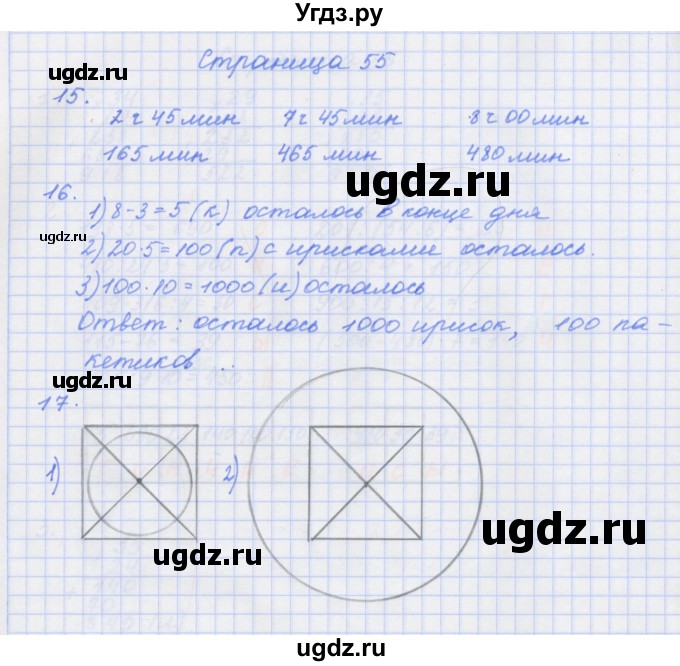 Угдз.ру
Страница 55
ugdz.ru
15.
2 ч 45 мин 7 ч 45 мин 8 ч 00 мин
165 мин 465 мин 480 мин
ugdz.ru ugdz.ru
16.
1) 8-3=5 (к) осталось в конце дня
ugdz.ru
2) 20·5=100 (п) с ирисками осталось.
3) 100·10=1000 (и) осталось
Ответ: осталось 1000 ирисок, 100 па-
кетиков
ugdz.ru
17.
1) 2)
ugdz.ru ugdz.ru
ugdz.ru